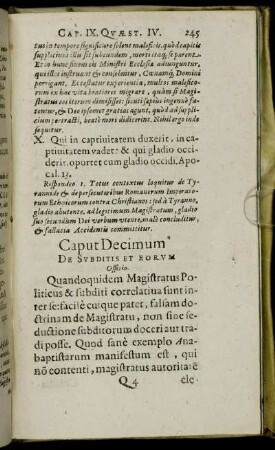 CAP. IX. QVÆST. IV. 245
tuo in tempore significare solent malefici, quòd capitis
supplicium illis sit subeundum, morti itaq; se parent.
Et in hunc finem eis Ministri Ecclesiæ adiunguntur,
qui illos instruant & consolentur, Cœnamq; Domini
porrigant. Et testatur experientia, multos maleficorum
ex hac vita beatiores migrare, quàm si Magistratus
eos iterum dimisisset: sicuti sapius ingenuè fatentur,
& Deo ipsomet gratias agunt, quòd ad supplicium
pertracti, beatè mori didicerint. Nihil ergo inde
sequitur.
X. Qui in captiuitatem duxerit, in captiuitatem
vadet: & qui gladio occiderit,
oportet eum gladio occidi, Apocal.
13.
Respondeo 1. Totus contextus loquitur de Tyrannide
& de persecutoribus Romanorum Imperatorum
Ethnicorum contra Christianos: sed à Tyranno,
gladio abutente, ad legitimum Magistratum, gladio
suo secundum Dei verbum vtente, malè concluditur,
& fallacia Accidentis committitur.
Caput Decimum
DE SVBDITIS ET EORVM
Officio.
Quandoquidem Magistratus Politicus
& subditi correlatiua sunt inter
se: facilè cuique patet, falsam doctrinam
de Magistratu, non sine seductione
subditorum doceri aut tradi
posse. Quod sanè exemplo Anabaptistarum
manifestum est, qui
nō contenti, magistratus autoritatē
Q 4 ele-